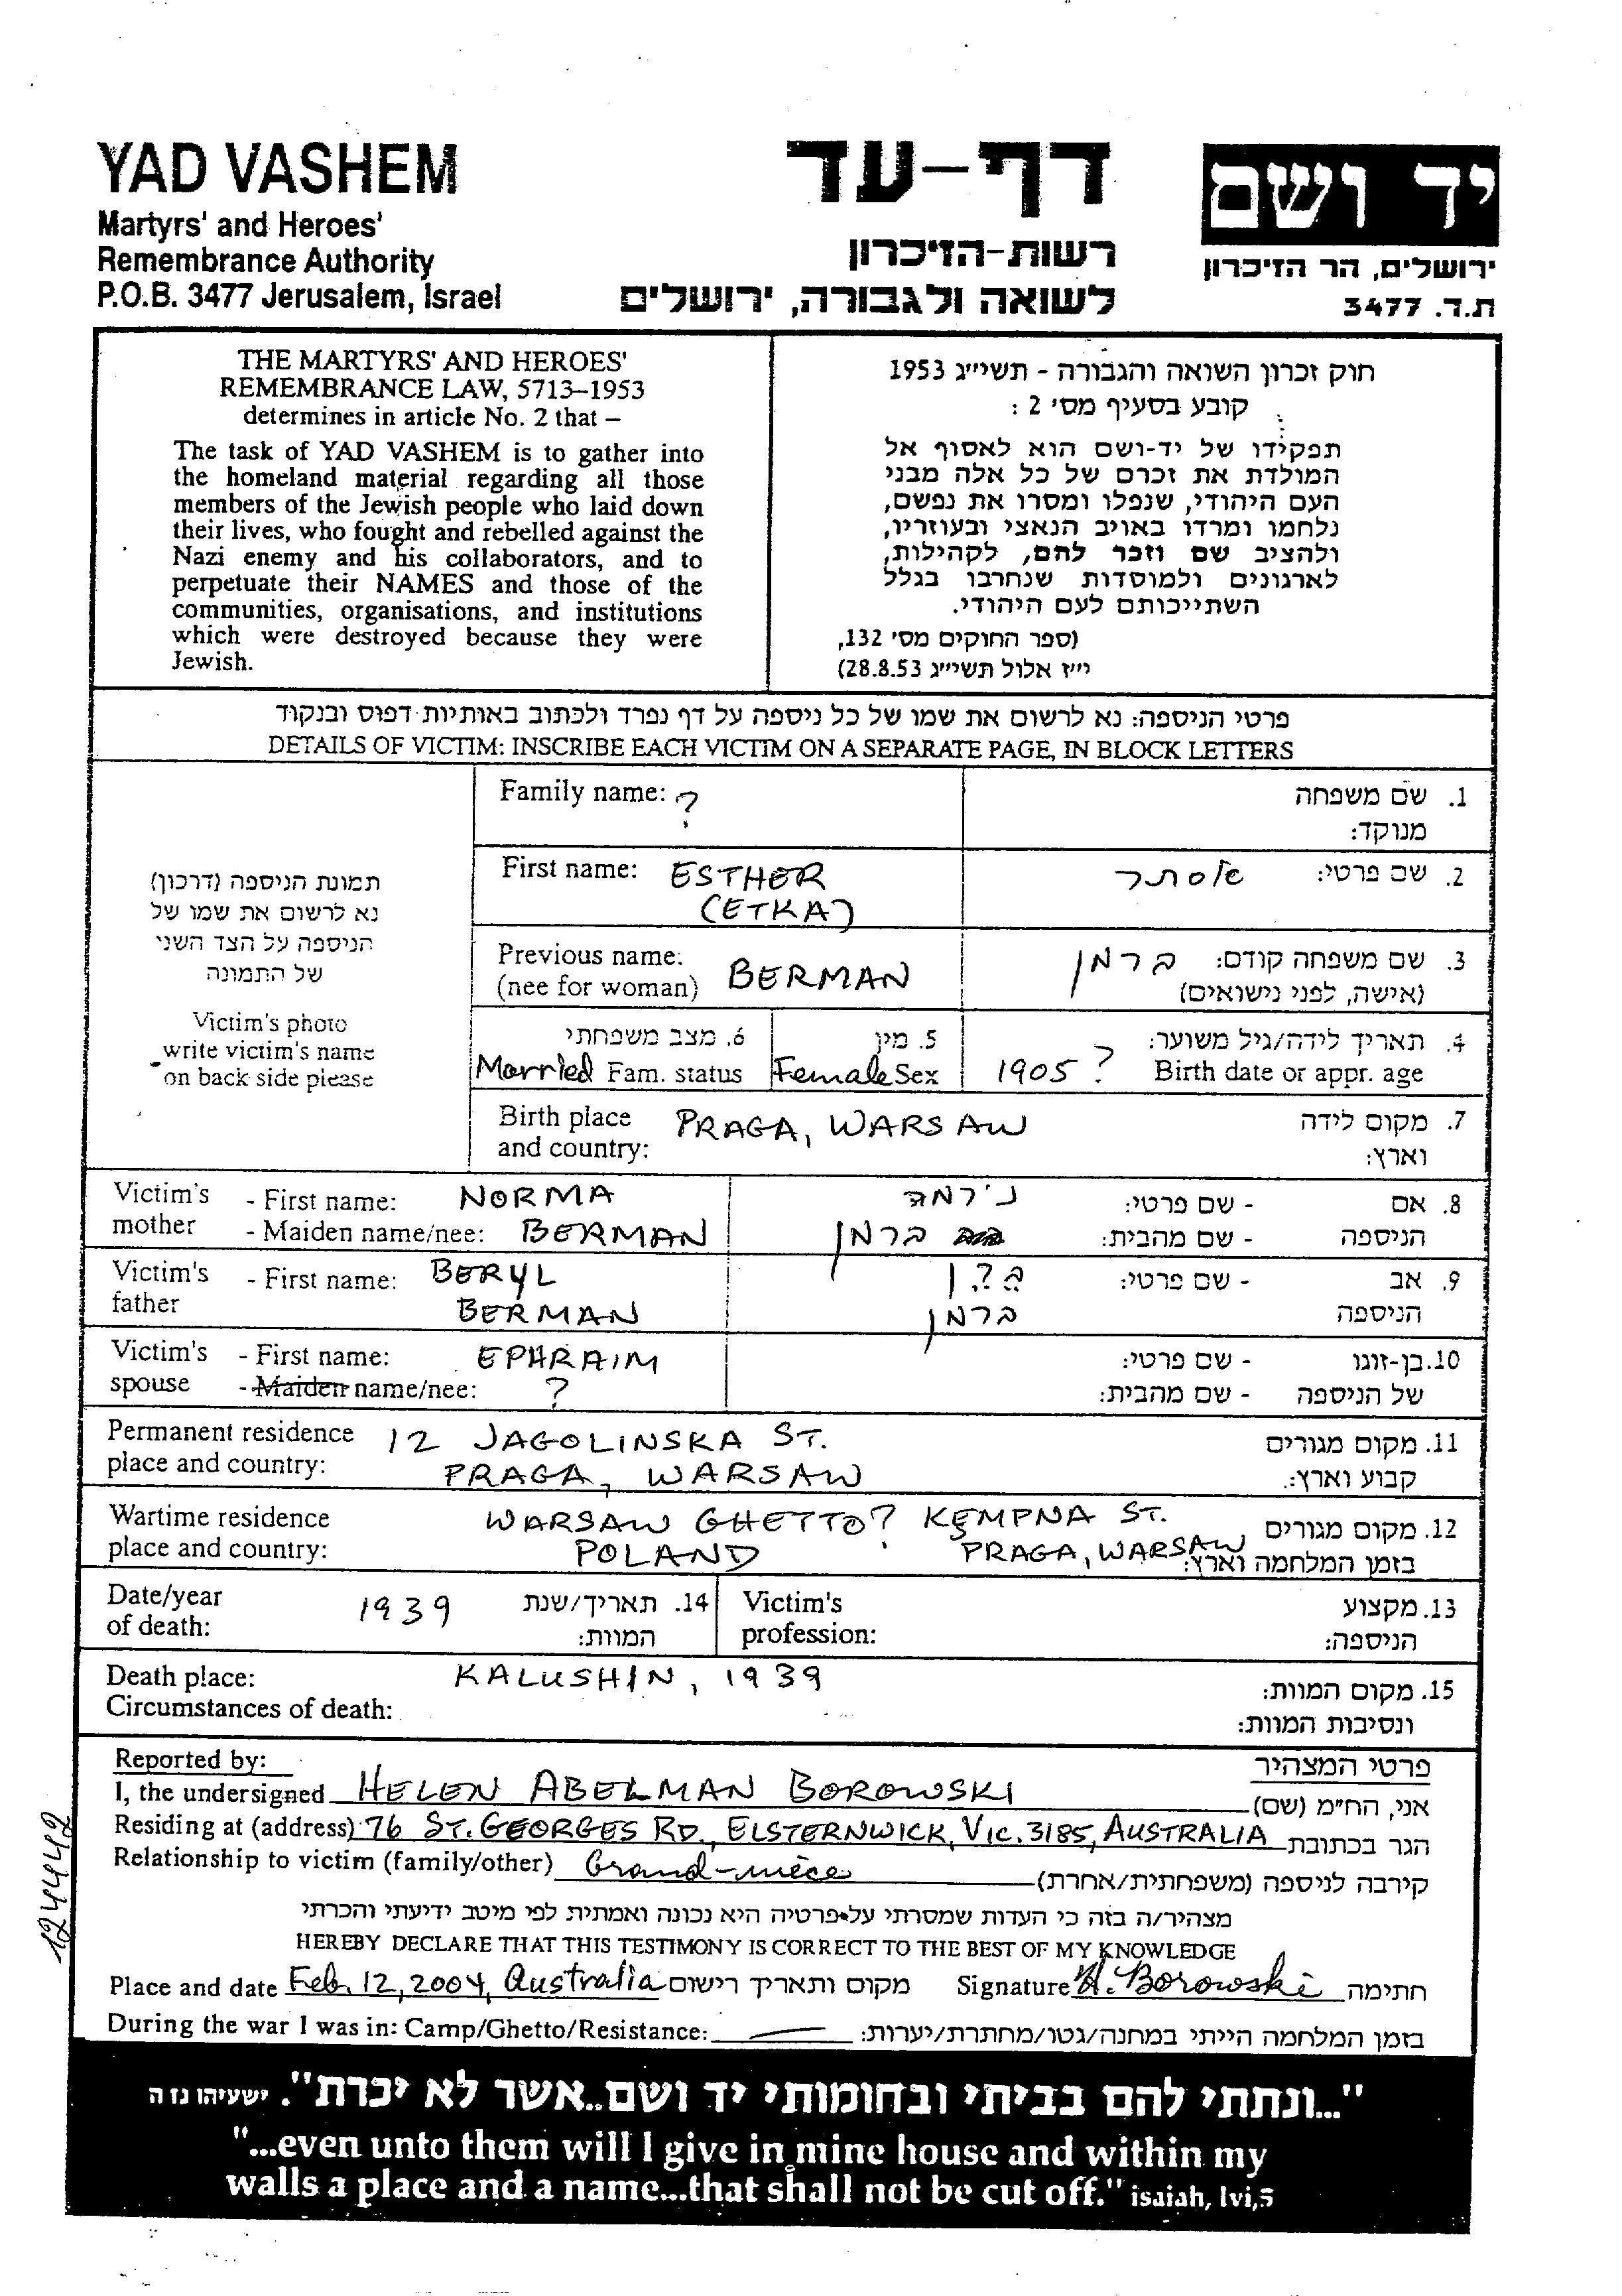 YAD VASHEM
Martyrs' and Heroes'
Remembrance Authority
P.O.B. 3477 Jerusalem, Israel
דף-עד
רשות-הזיכרון
לשואה ולגבורה, ירושלים
יד ושם
ירושלים, הר הזיכרון
ת.ד. 3477
THE MARTYRS' AND HEROES'
REMEMBRANCE LAW, 5713–1953
determines in article No. 2 that –
The task of YAD VASHEM is to gather into
the homeland material regarding all those
members of the Jewish people who laid down
their lives, who fought and rebelled against the
Nazi enemy and his collaborators, and to
perpetuate their NAMES and those of the
communities, organisations, and institutions
which were destroyed because they were
Jewish.
חוק זכרון השואה והגבורה - תשי״ג 1953
קובע בסעיף מס׳ 2 :
תפקידו של יד-ושם הוא לאסוף אל
המולדת את זכרם של כל אלה מבני
העם היהודי, שנפלו ומסרו את נפשם,
נלחמו ומרדו באויב הנאצי ובעוזריו,
ולהציב שם וזכר להם, לקהילות,
לארגונים ולמוסדות שנחרבו בגלל
השתייכותם לעם היהודי.
(ספר החוקים מס׳ 132,
י״ז אלול תשי״ג 28.8.53)
פרטי הניספה: נא לרשום את שמו של כל ניספה על דף נפרד ולכתוב באותיות דפוס ובנקוד
DETAILS OF VICTIM: INSCRIBE EACH VICTIM ON A SEPARATE PAGE, IN BLOCK LETTERS
תמונת הניספה (דרכון)
נא לרשום את שמו של
הניספה על הצד השני
של התמונה
Victim's photo
write victim's name
on back side please
Family name: ? 1. שם משפחה
מנוקד:
First name: ESTHER אסתר 2. שם פרטי:
(ETKA)
Previous name: BERMAN ברמן 3. שם משפחה קודם:
(nee for woman) (אישה, לפני נישואים)
6. מצב משפחתי 5. מין 4. תאריך לידה/גיל משוער:
Married Fam. status Female Sex 1905? Birth date or appr. age
Birth place PRAGA, WARSAW 7. מקום לידה
and country: וארץ:
Victim's - First name: NORMA נ׳רמה - שם פרטי: 8. אם
mother - Maiden name/nee: BERMAN ברמן - שם מהבית: הניספה
Victim's - First name: BERYL - שם פרטי: 9. אב
father BERMAN ברמן הניספה
Victim's - First name: EPHRAIM - שם פרטי: 10. בן-זוגו
spouse - Maiden name/nee: ? - שם מהבית: של הניספה
Permanent residence 12 JAGOLINSKA ST. 11. מקום מגורים
place and country: PRAGA, WARSAW קבוע וארץ:
Wartime residence WARSAW GHETTO? KEMPNA ST. 12. מקום מגורים
place and country: POLAND PRAGA, WARSAW בזמן המלחמה וארץ:
Date/year 1939 14. תאריך/שנת Victim's 13. מקצוע
of death: המוות: profession: הניספה:
Death place: KALUSHIN, 1939 15. מקום המוות:
Circumstances of death: ונסיבות המוות:
Reported by: פרטי המצהיר
I, the undersigned HELEN ABELMAN BOROWSKI אני, הח״מ (שם)
Residing at (address) 76 ST. GEORGES RD., ELSTERNWICK, VIC. 3185, AUSTRALIA הגר בכתובת
Relationship to victim (family/other) Grand-niece קירבה לניספה (משפחתית/אחרת)
מצהיר/ה בזה כי העדות שמסרתי על פרטיה היא נכונה ואמתית לפי מיטב ידיעתי והכרתי
HEREBY DECLARE THAT THIS TESTIMONY IS CORRECT TO THE BEST OF MY KNOWLEDGE
Place and date Feb. 12, 2004, Australia מקום ותאריך רישום Signature H. Borowski חתימה
During the war I was in: Camp/Ghetto/Resistance: — בזמן המלחמה הייתי במחנה/גטו/מחתרת/יערות:
"...ונתתי להם בביתי ובחומותי יד ושם..אשר לא יכרת". ישעיהו נו ה
"...even unto them will I give in mine house and within my
walls a place and a name...that shall not be cut off." isaiah, lvi,5
124442